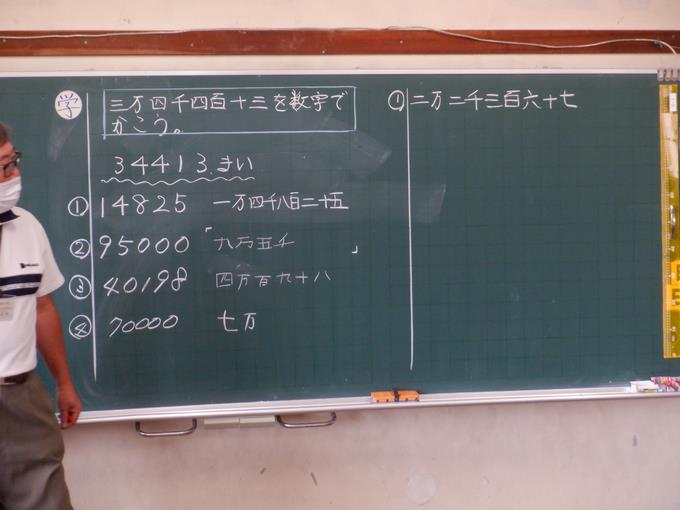 学
三万四千四百十三を数字で
かこう。
34413まい
① 14825 一万四千八百二十五
② 95000 「九万五千 」
③ 40198 四万百九十八
④ 70000 七万
① 二万二千三百六十七